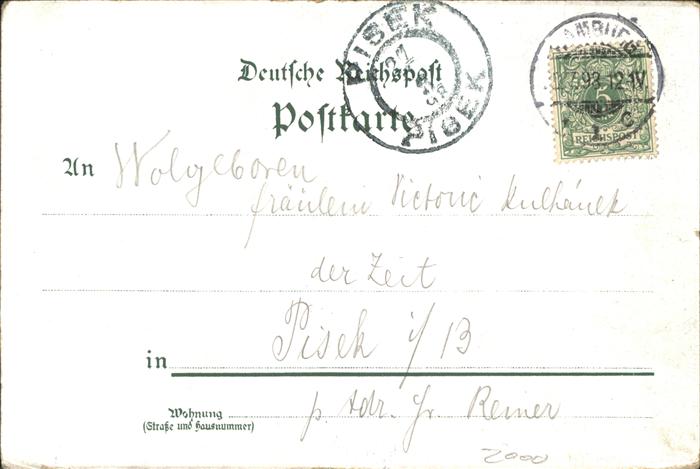 PISEK
PISEK
27
HAMBURG
7.98 12-1V
* 1 c
5
REICHSPOST
Deutsche Reichspost
Postkarte
An Wolgeboren
fräulein Victorie Kulhánek
der Zeit
in Pisek i/B
Wohnung
(Straße und Hausnummer)
p Adr. Hr. Reiner
2000